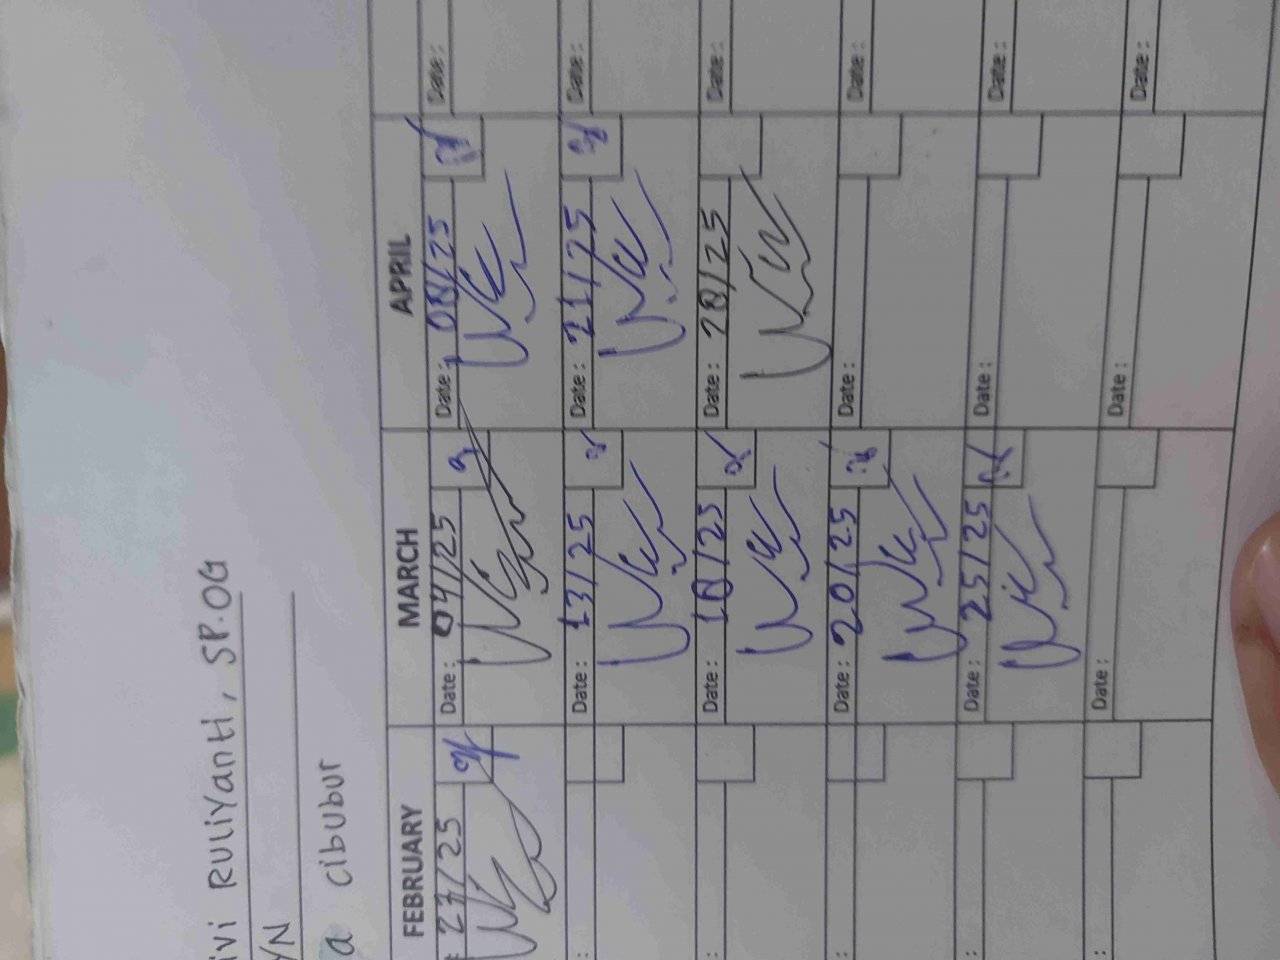 ivi RULIYANTI, SP.OG
YN
a cibubur
FEBRUARY
MARCH
APRIL
: 27/25
Date: 04/25
Date: 08/25
Date:
:
Date: 13/25
Date: 21/25
Date:
:
Date: 18/25
Date: 28/25
Date:
:
Date: 20/25
Date:
Date:
:
Date: 25/25
Date:
Date:
:
Date:
Date:
Date: